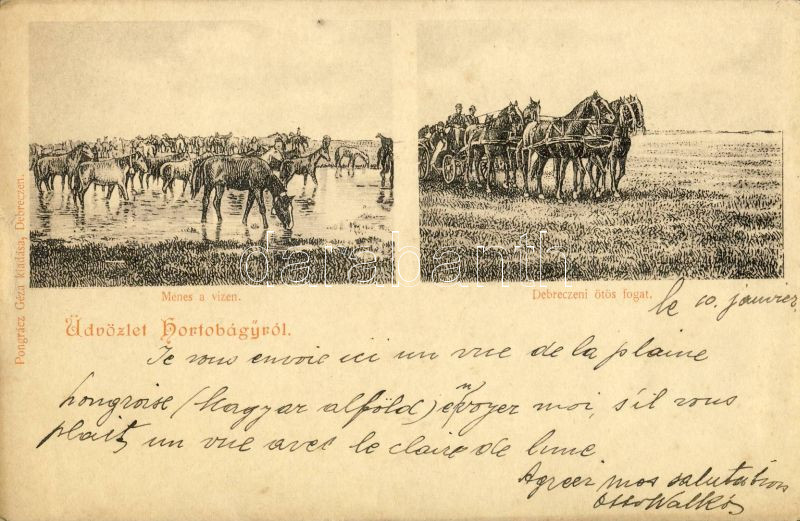 Menes a vizen.
Debreczeni ötös fogat.
Pongrácz Géza kiadása, Debreczen.
darabanth
Üdvözlet Hortobágyról.
le 10. janvier.
Je vous envoie ici un vue de la plaine
hongroise (Magyar alföld) envoyer moi, s'il vous
plait, un vue avec le claire de lune
Agréer mos salutation
Otto